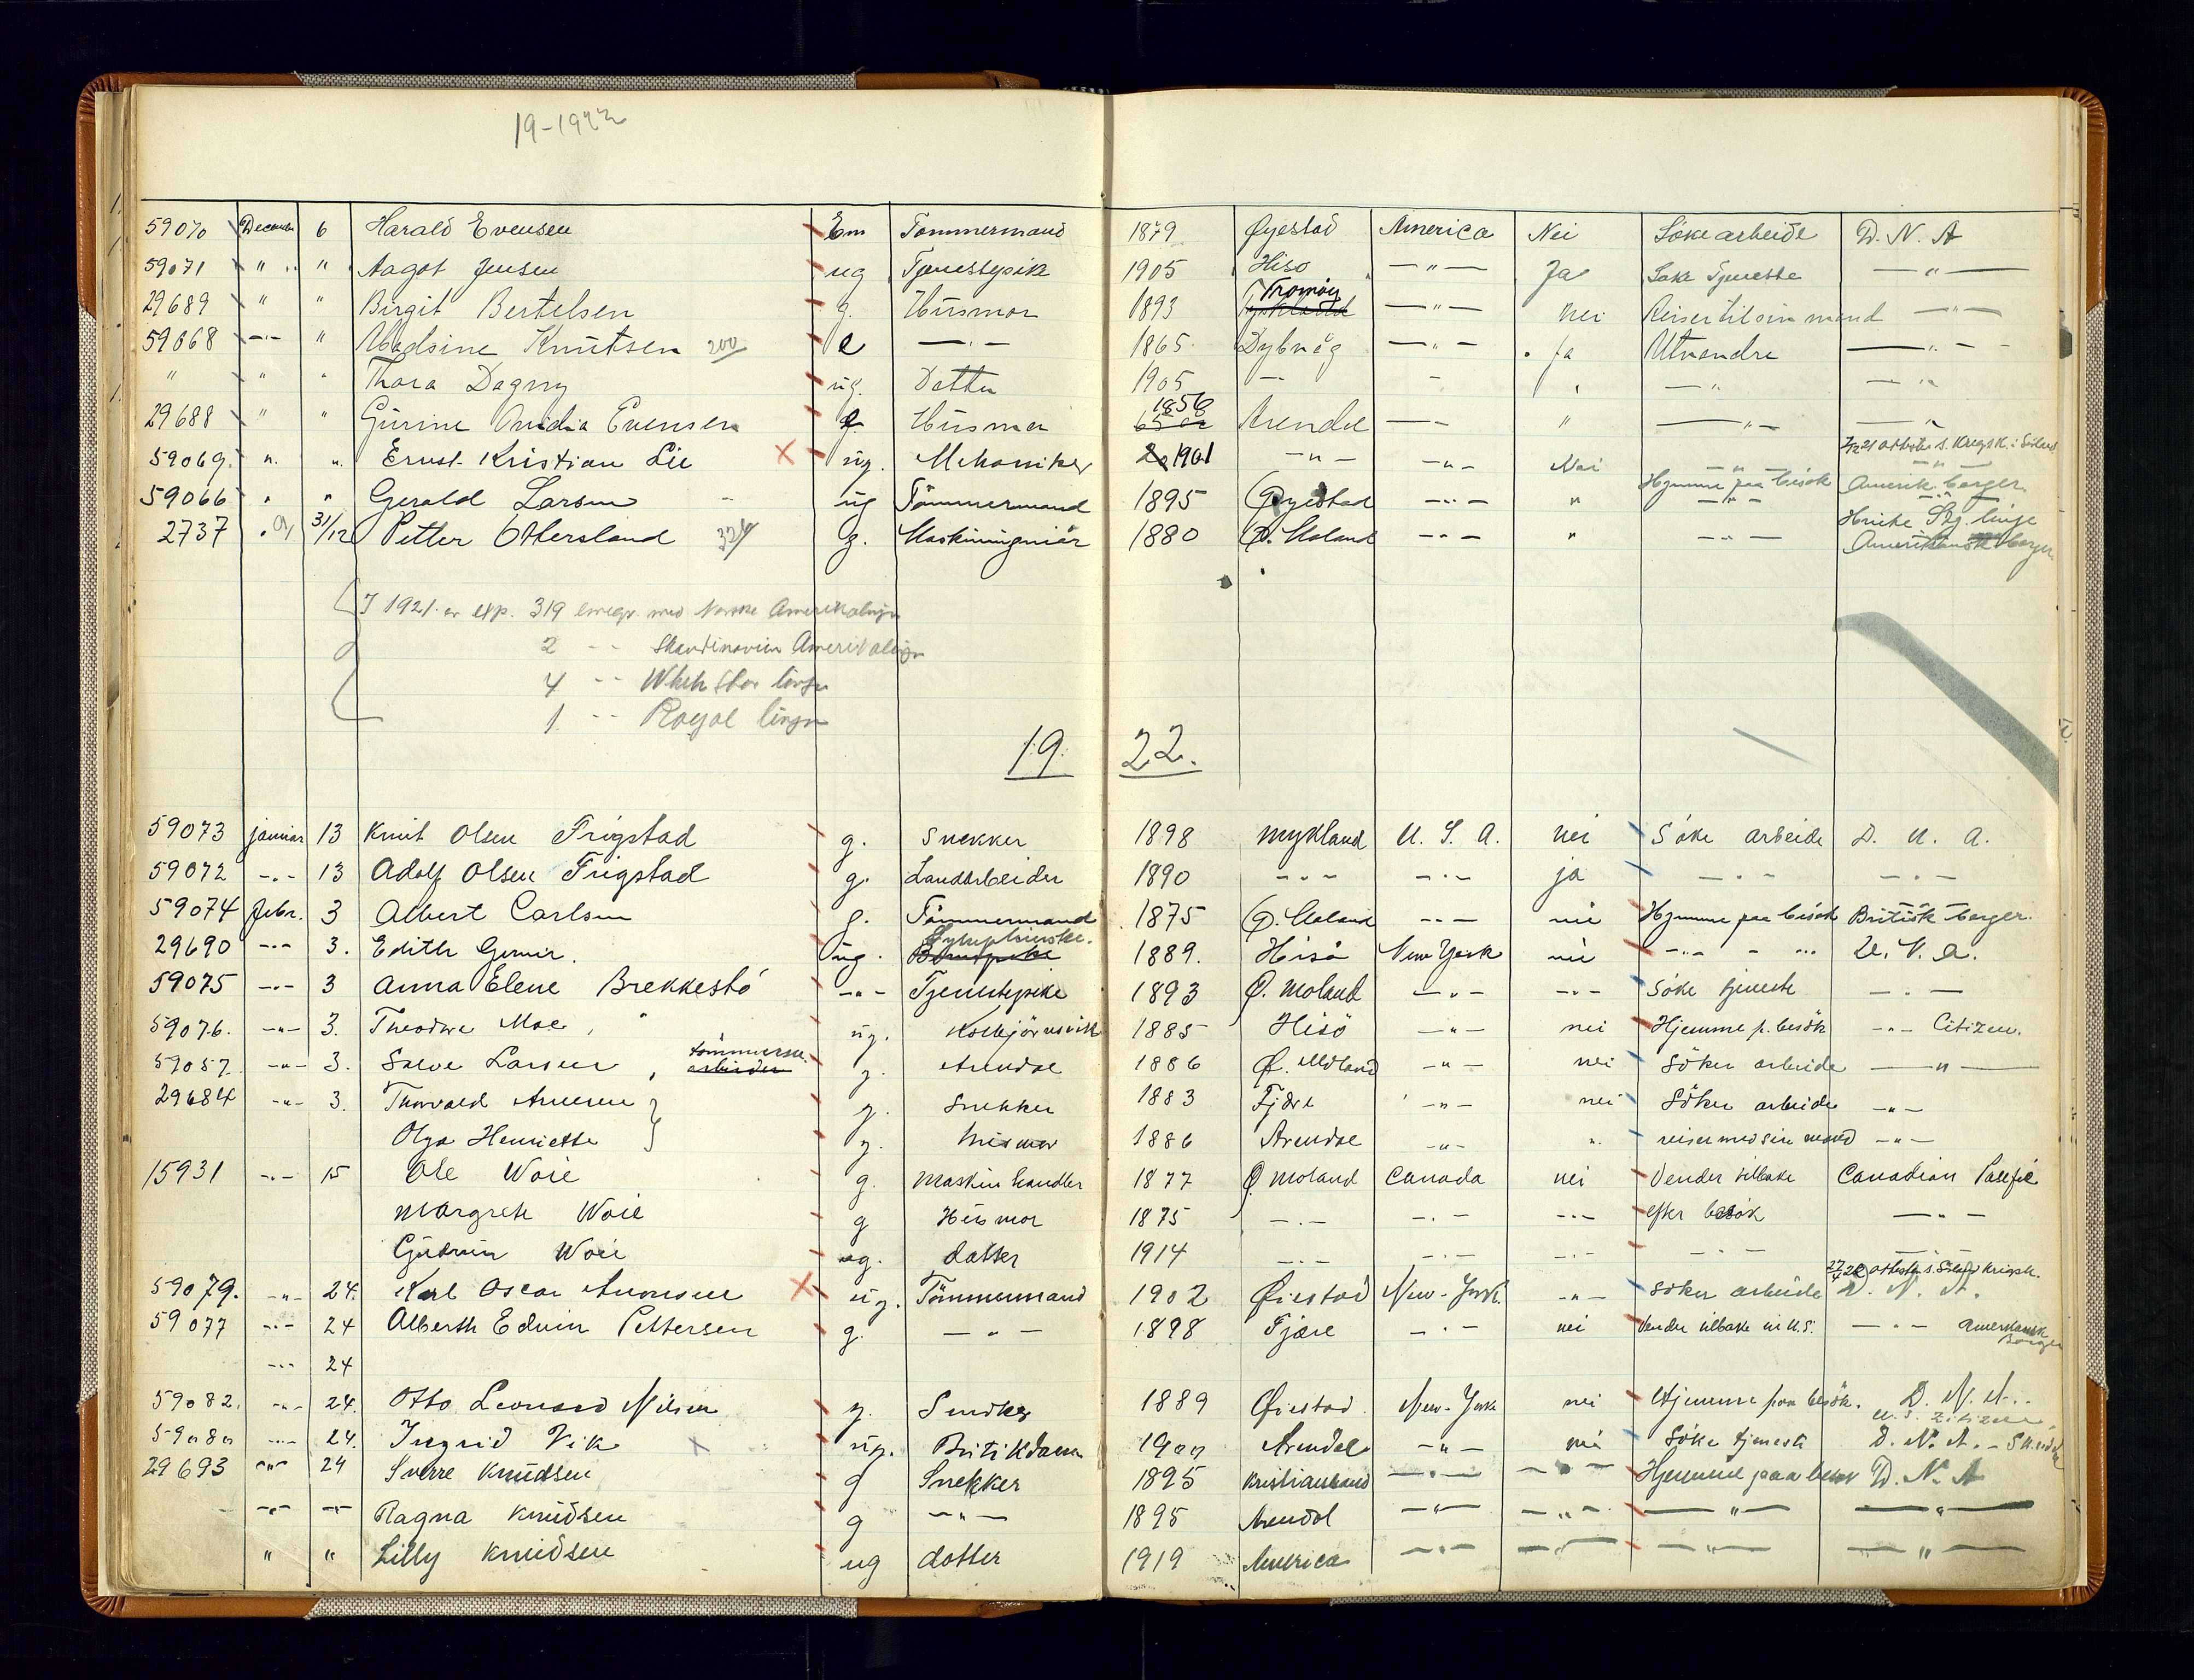 19-1922
59070 December 6 Harald Evensen Em Tømmermand 1879 Øyestad America Nei Søke arbeide D. N. A
59071 " " Aagot Jensen ug Tjenestepik 1905 Hisø — " — Ja Søke Tjeneste — " —
29689 " " Birgit Bertelsen g. Husmor 1893 Tromøy — " — Nei Reiser til sin mand — " —
59068 — " — " Madsine Knutsen 200 e — " — 1865 Dybvåg — " — Ja Utvandre — " —
" " " Thora Dagny ug. Datter 1905 — " — " — " — — " —
29688 " " Gurine Evensen e Husmor 1856 Arendal — " — " — " — — " —
59069. " " Ernst Kristian Lie X ug. Mekaniker 1901 — " — — " — Nei — " —
59066 " " Gerald Larsen ug Tömmermand 1895 Øyestad — " — " Hjemme paa besök Amerik. borger
2737 31/12 Petter Ottersland 324 g. Maskiningeniör 1880 Ø. Moland — " — " — " — Hvite Stj. linje
Amerikansk borger
I 1921 er exp. 319 emigr. med Norske Amerikalinje
2 - - Skandinavien Amerikalinje
4 - - White Star linje
1 - - Royal linje
19 22.
59073 januar 13 Knut Olsen Frigstad g. Snekker 1898 Mykland U. S. A. nei Söke arbeide D. N. A.
59072 — " — 13 Adolf Olsen Frigstad g. Landarbeider 1890 — " — — " — ja — " — — " —
59074 febr. 3 Albert Carlsen g. Tömmermand 1875 Ø. Moland — " — nei Hjemme paa besök Britisk borger.
29690 — " — 3. Edith ug. Sykepleierske. 1889. Hisö New York nei — " — D. N. A.
59075 — " — 3 Anna Elene Brekkestö — " — Tjenestepike 1893 Ø. Moland — " — — " — Söke tjeneste — " —
59076. — " — 3. Theodore Moe, ug. Kolbjörnsvik 1885 Hisö — " — nei Hjemme p. besök — " — Citizen.
59057. — " — 3. Salve Larsen, tömmerm. arbeider g. Arendal 1886 Ø. Moland — " — nei Söker arbeide — " —
29684 — " — 3. Thorvald g. Snekker 1883 Fjære — " — nei Söker arbeide — " —
Olga Henriette g. husmor 1886 Arendal — " — " reiser med sin mand — " —
15931 — " — 15 Ole Woie g. Maskin handler 1877 Ø. Moland Canada nei Vender tilbake Canadian Pacific
Margrete Woie g Husmor 1875 — " — — " — — " — efter besök — " —
Gudrun Woie ug. datter 1914 — " — — " — — " — — " — — " —
59079. — " — 24. Karl Oscar X ug. Tömmermand 1902 Øiestad New-York. — " — Söker arbeide D. N. A.
59077 — " — 24 Alberth Edvin Pettersen g. — " — 1898 Fjære — " — nei Vender tilbake til U.S. — " — Amerikansk Borger
— " — 24
59082. — " — 24. Otto Leonard Nilsen g. Snedker 1889 Øiestad New-York nei Hjemme paa besök. D. N. A..
U. S. Citizen.
59080 — " — 24. Ingrid Vik X ug. Butikdame 1900 Arendal — " — nei Söke tjeneste D. N. A.
29693 — " — 24 Sverre Knudsen g Snekker 1895 Kristiansand — " — — " — Hjemme paa besök D. N. A
— " — — " — Ragna Knudsen g — " — 1895 Arendal — " — — " — — " — — " —
" " Lilly Knudsen ug datter 1919 America — " — — " — — " — — " —